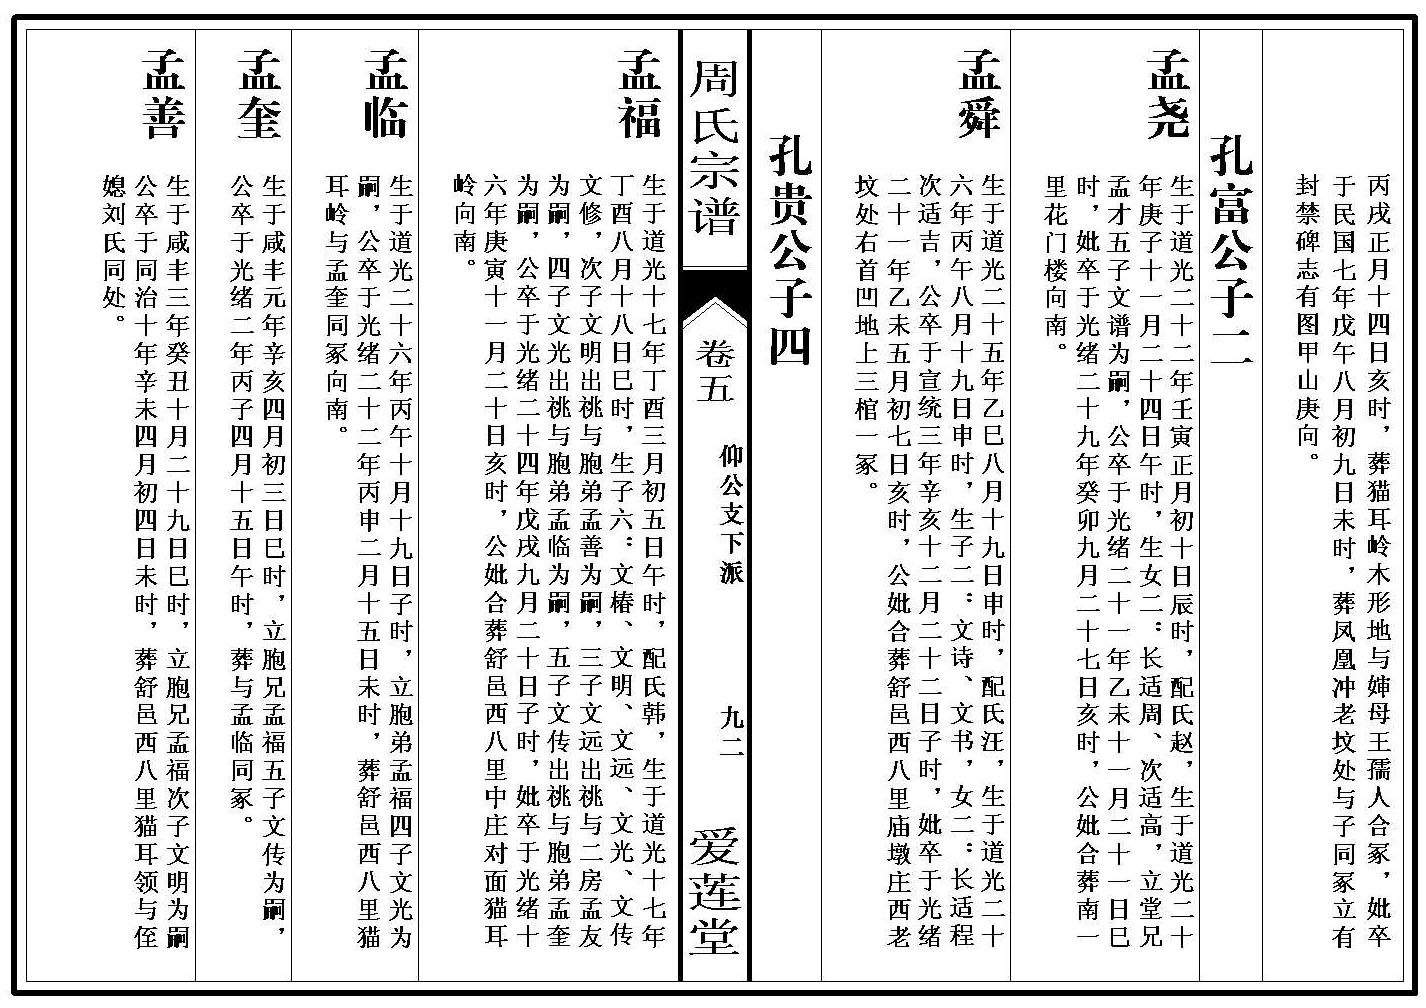 丙戌正月十四日亥时，葬猫耳岭木形地与婶母王孺人合冢，妣卒
于民国七年戊午八月初九日未时，葬凤凰冲老坟处与子同冢立有
封禁碑志有图甲山庚向。
孔富公子二
孟尧
生于道光二十二年壬寅正月初十日辰时，配氏赵，生于道光二十
年庚子十一月二十四日午时，生女二：长适周、次适高，立堂兄
孟才五子文谱为嗣，公卒于光绪二十一年乙未十一月二十一日巳
时，妣卒于光绪二十九年癸卯九月二十七日亥时，公妣合葬南一
里花门楼向南。
孟舜
生于道光二十五年乙巳八月十九日申时，配氏汪，生于道光二十
六年丙午八月十九日申时，生子二：文诗、文书，女二：长适程
次适吉，公卒于宣统三年辛亥十二月二十二日子时，妣卒于光绪
二十一年乙未五月初七日亥时，公妣合葬舒邑西八里庙墩庄西老
坟处右首凹地上三棺一冢。
孔贵公子四
周氏宗谱
卷五
仰公支下派
九二
爱莲堂
孟福
生于道光十七年丁酉三月初五日午时，配氏韩，生于道光十七年
丁酉八月十八日巳时，生子六：文椿、文明、文远、文光、文传
文修，次子文明出祧与胞弟孟善为嗣，三子文远出祧与二房孟友
为嗣，四子文光出祧与胞弟孟临为嗣，五子文传出祧与胞弟孟奎
为嗣，公卒于光绪二十四年戊戌九月二十日子时，妣卒于光绪十
六年庚寅十一月二十日亥时，公妣合葬舒邑西八里中庄对面猫耳
岭向南。
孟临
生于道光二十六年丙午十月十九日子时，立胞弟孟福四子文光为
嗣，公卒于光绪二十二年丙申二月十五日未时，葬舒邑西八里猫
耳岭与孟奎同冢向南。
孟奎
生于咸丰元年辛亥四月初三日巳时，立胞兄孟福五子文传为嗣，
公卒于光绪二年丙子四月十五日午时，葬与孟临同冢。
孟善
生于咸丰三年癸丑十月二十九日巳时，立胞兄孟福次子文明为嗣
公卒于同治十年辛未四月初四日未时，葬舒邑西八里猫耳领与侄
媳刘氏同处。